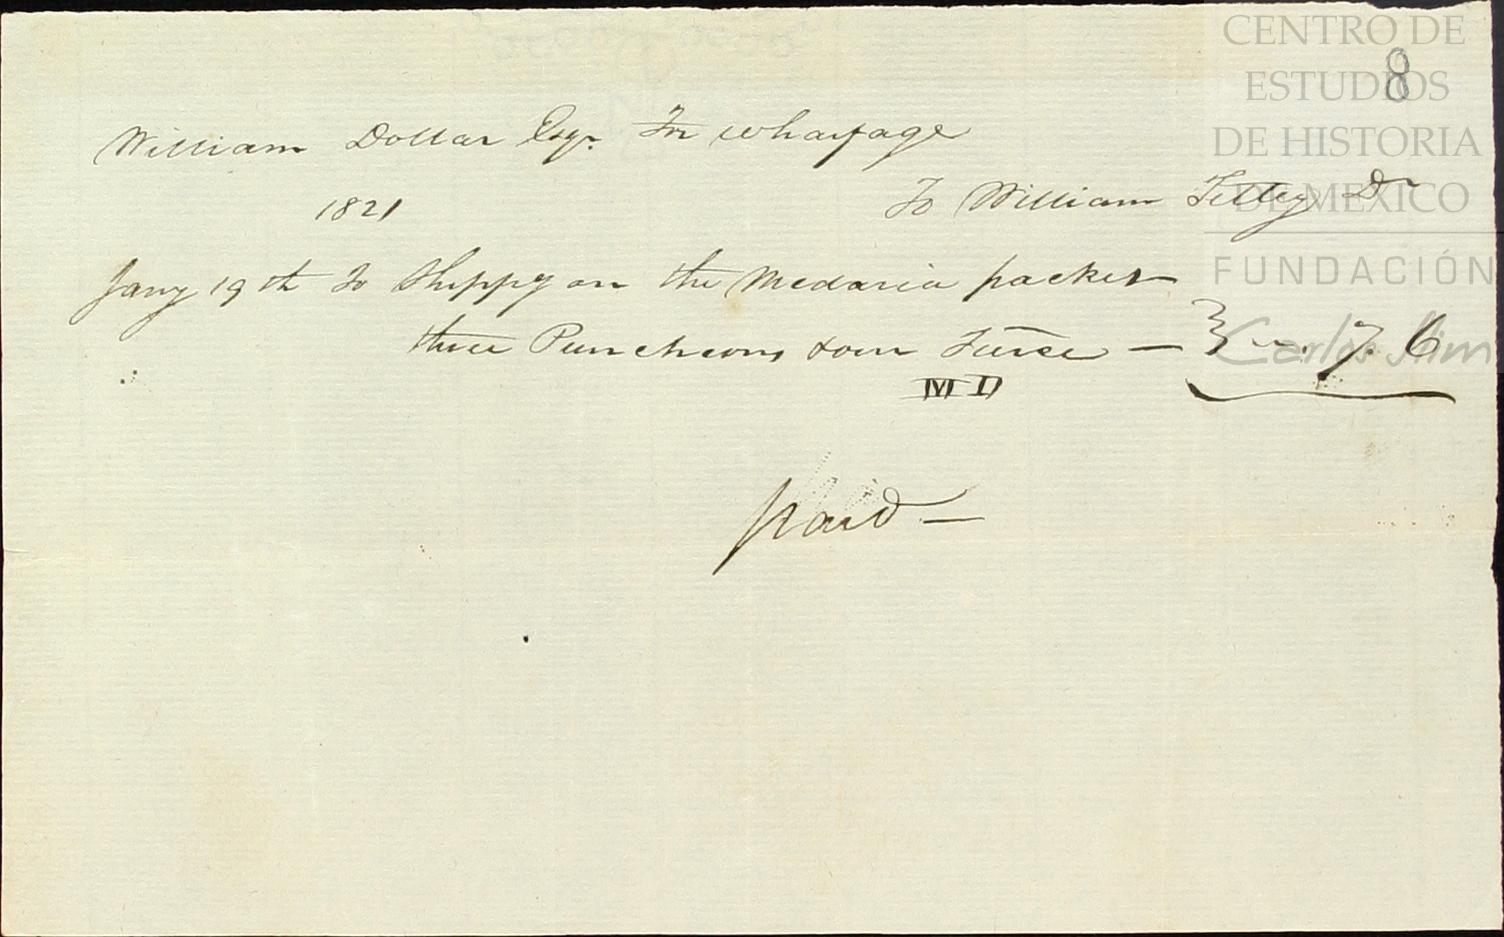 CENTRO DE
ESTUDIOS
DE HISTORIA
DE MEXICO
FUNDACIÓN
Carlos Slim
8
William Dollar Esqr. In wharfage
1821 To William Tetley Dr
Jany 19th To Shippg on the Medaria packet
three Puncheons rum — 7. 6
M D
paid —